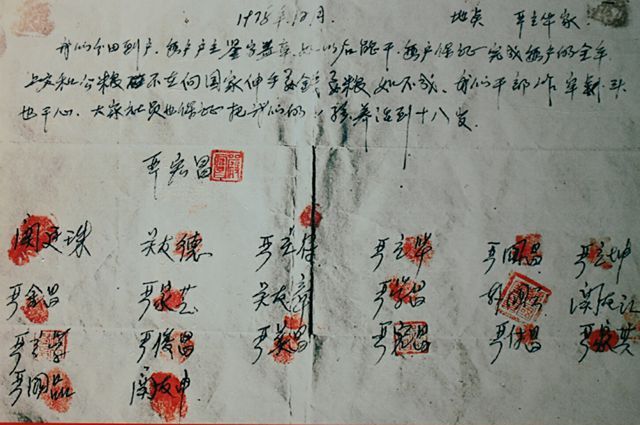 1978年12月 地点 严立华家
我们分田到户,每户户主签字盖章,如以后能干,每户保证完成每户的全年
上交和公粮,不在向国家伸手要钱要粮,如不成,我们干部作牢刹头
也干心,大家社员也保证把我们的小孩养活到十八岁.
严宏昌
关廷珠 关友德 严立符 严立华 严国昌 严立坤
严金昌 严家芝 关友章 严学昌 韩国云 关友江
严立学 严俊昌 严美昌 严宏昌 严付昌 严家其
严国品 关友申